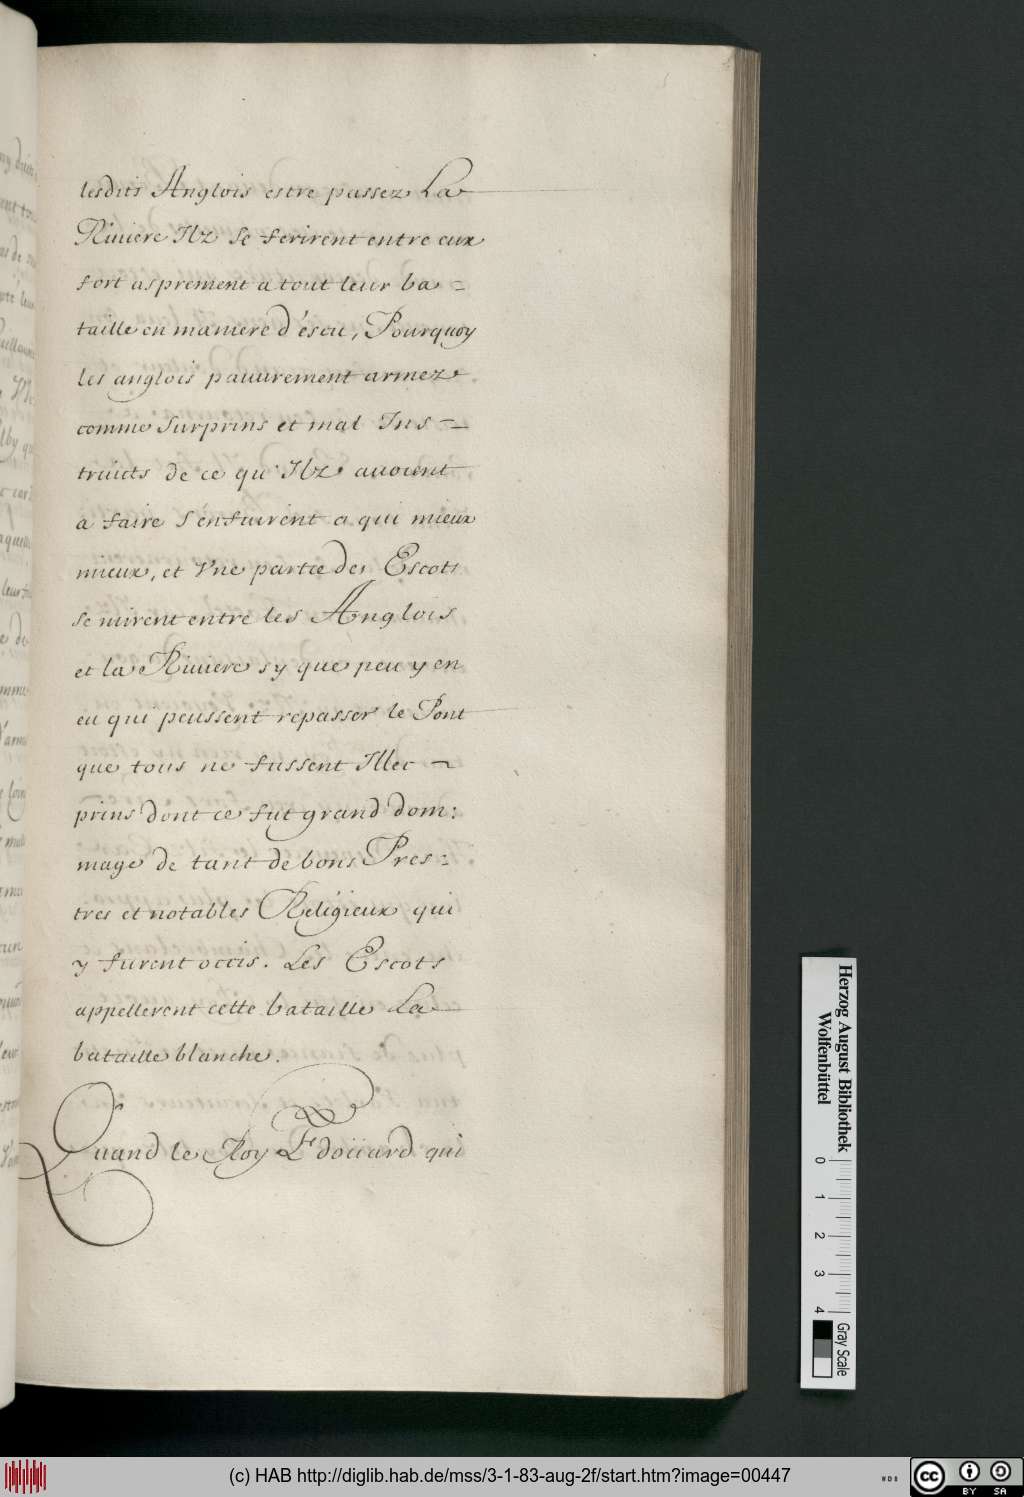 lesdits Anglois estre passez La
Riuiere Ilz se ferirent entre eux
fort asprement a tout leur ba =
taille en maniere d'escu, Pourquoy
les anglois pauurement armez
comme surprins et mal Ins =
truicts de ce qu'Ilz auoient
a faire s'enfuirent a qui mieux
mieux, et vne partie des Escots
se mirent entre les Anglois
et la Riuiere sy que peu y en
eu qui peussent repasser le Pont
que tous ne fussent Illec
prins dont ce fut grand dom:
mage de tant de bons Pres:
tres et notables Religieux qui
y furent occis. Les Escots
appellerent cette bataille La
bataille blanche.
Quand le Roy Edoüard qui
Herzog August Bibliothek
Wolfenbüttel
0 1 2 3 4
Gray Scale
(c) HAB http://diglib.hab.de/mss/3-1-83-aug-2f/start.htm?image=00447
WDB
cc BY SA